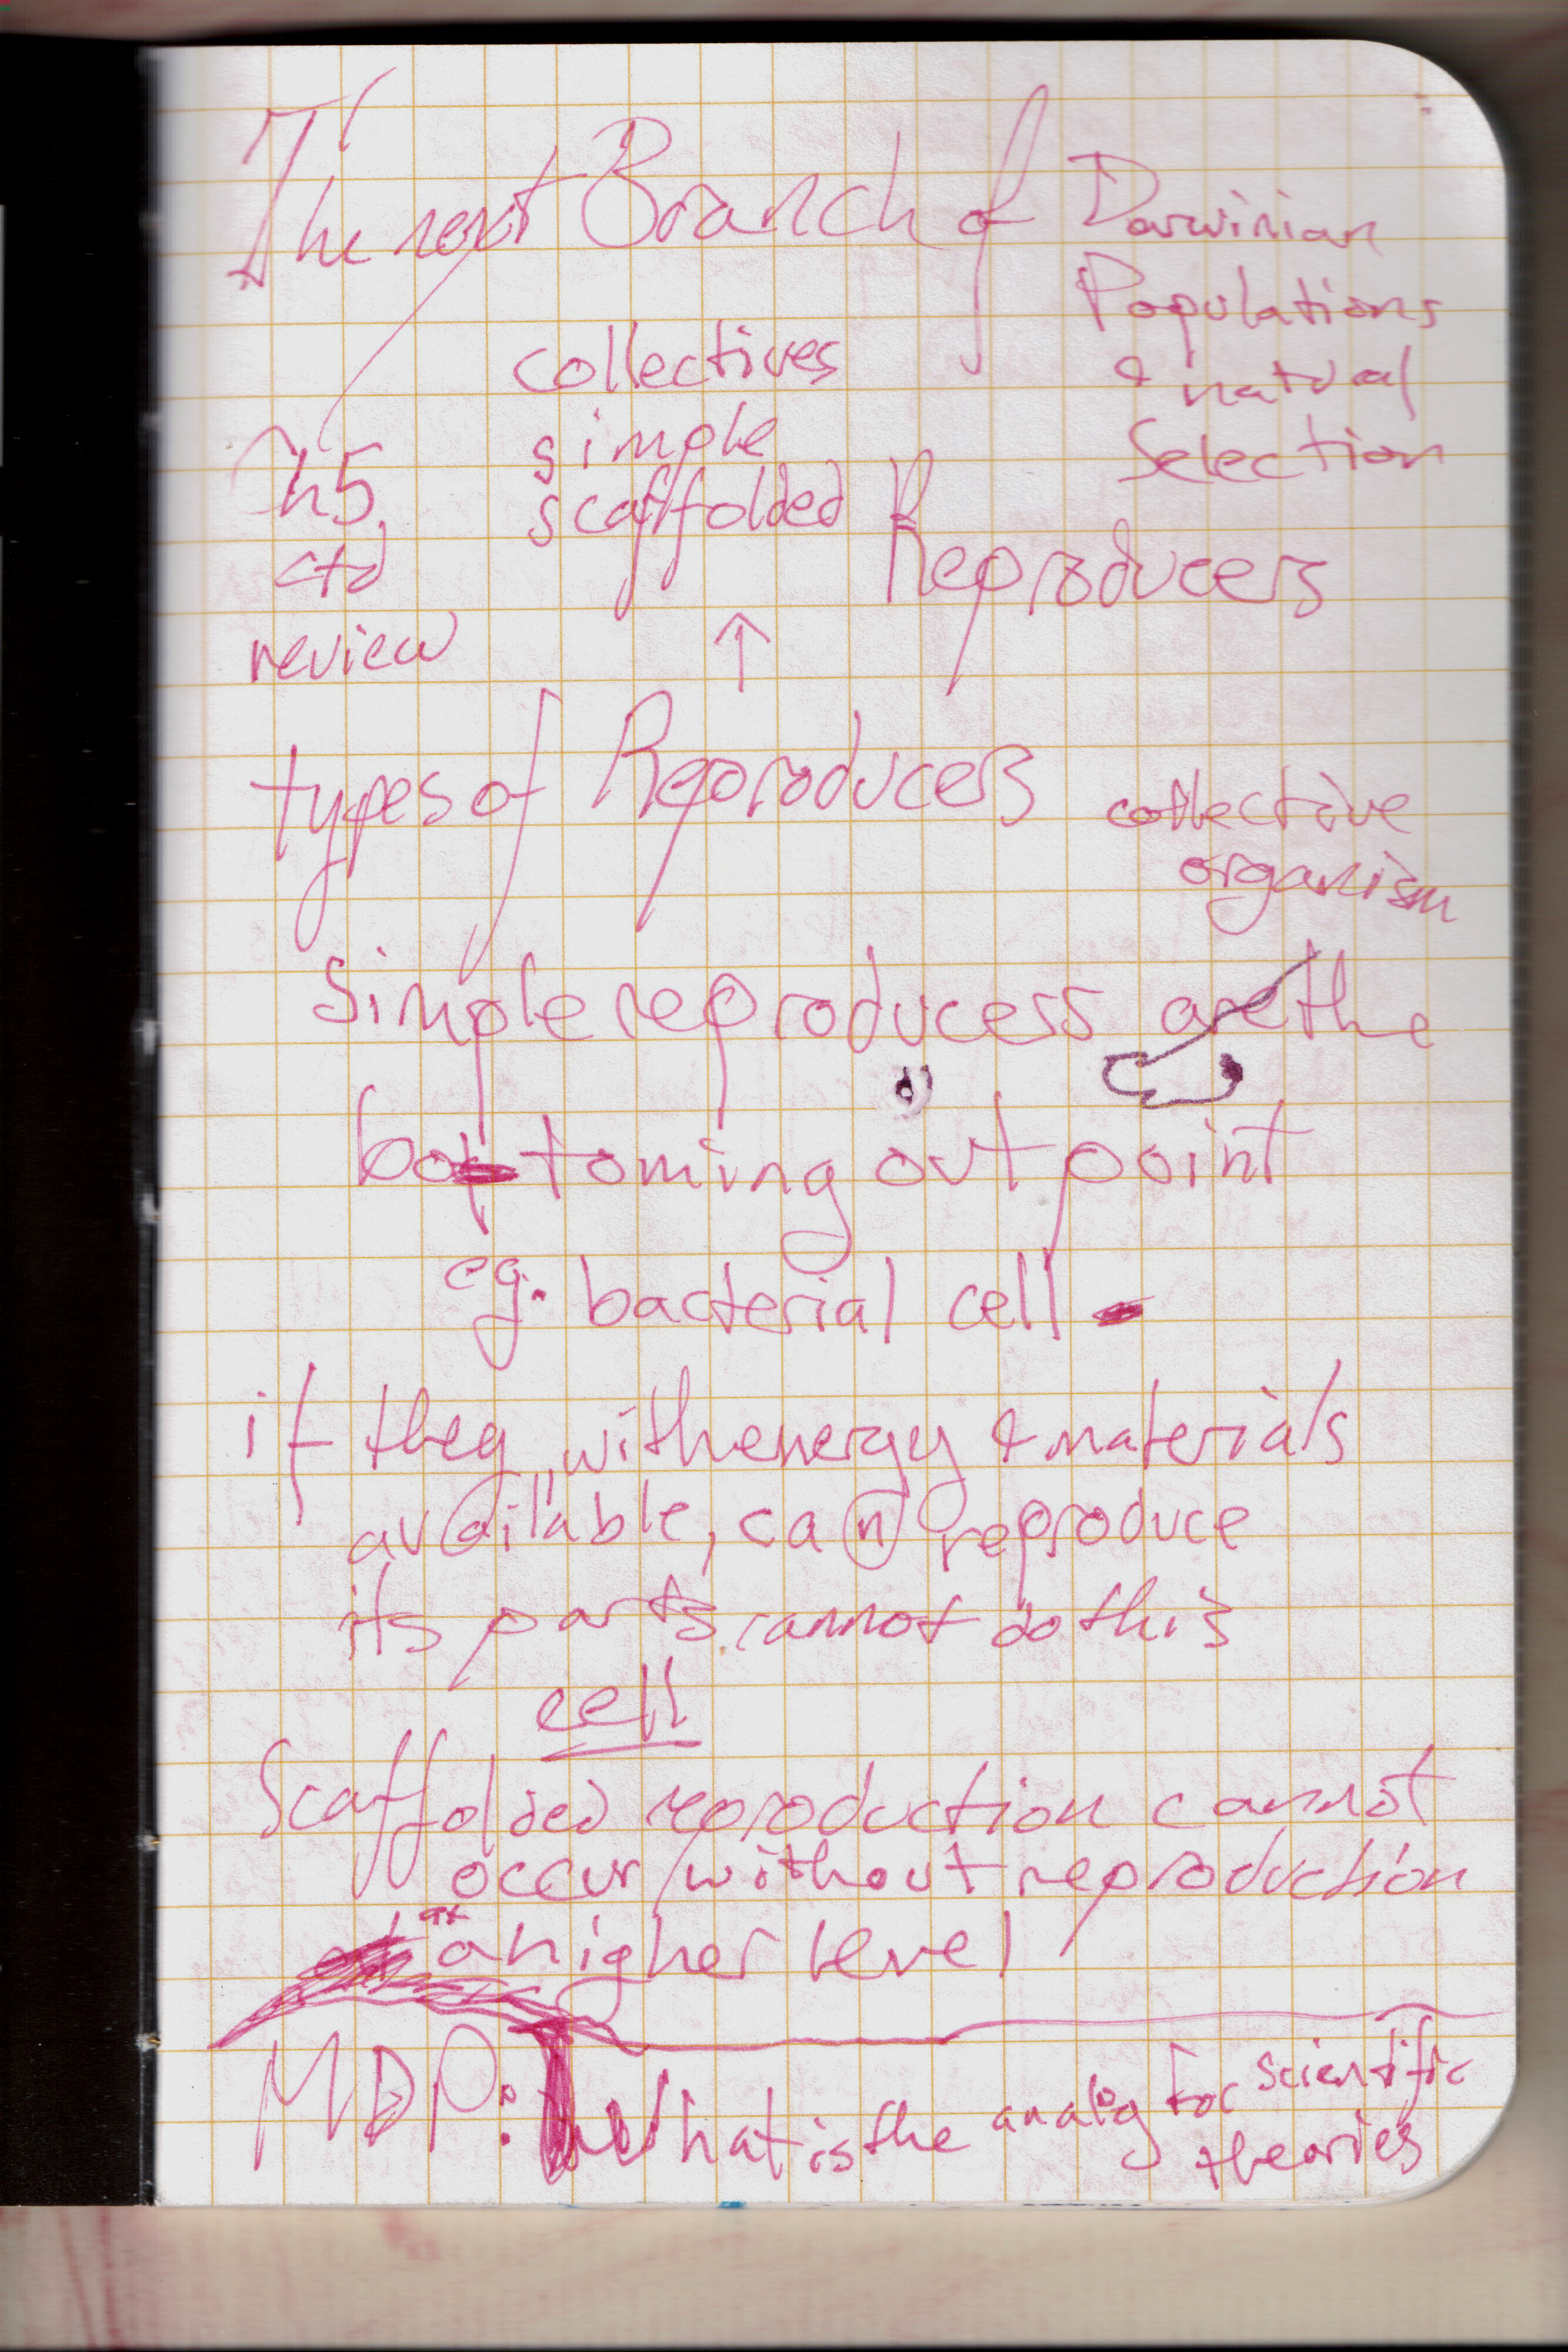 The next Branch of Darwinian
Populations
& natural
Selection
collectives
simple
scaffolded Reproducers
h5
ctd
review
↑
types of Reproducers
collective
organism
Simple reproducers are the
bottoming out point
eg. bacterial cell
if they, with energy & materials
available, can reproduce
its parts cannot do this
cell
Scaffolded reproduction cannot
occur without reproduction
at a higher level
MDP: What is the analog for scientific
theories